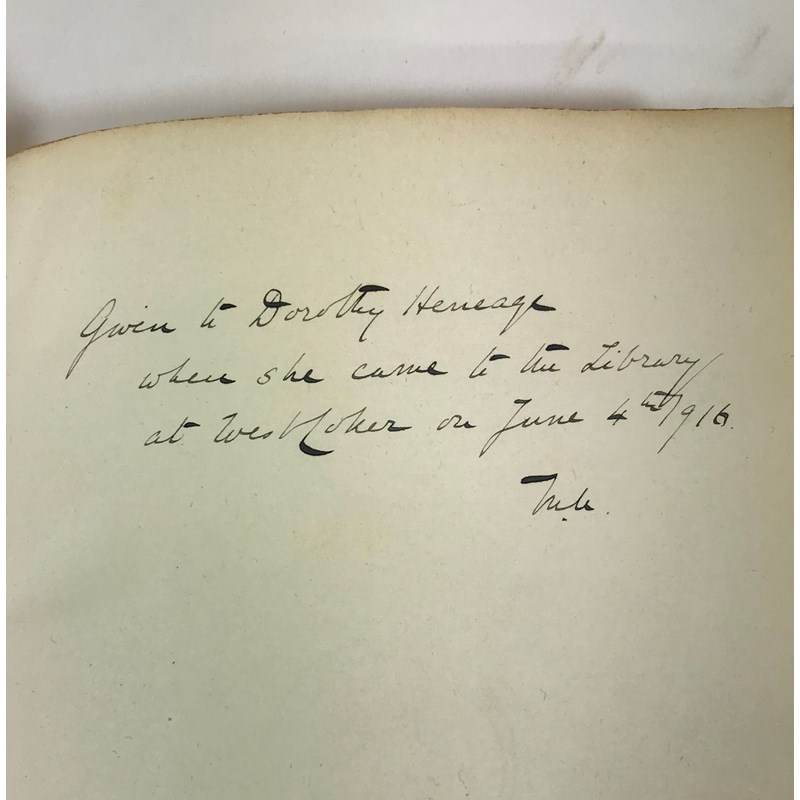 Given to Dorothy Heneage
when she came to the Library
at West Coker on June 4th 1916.